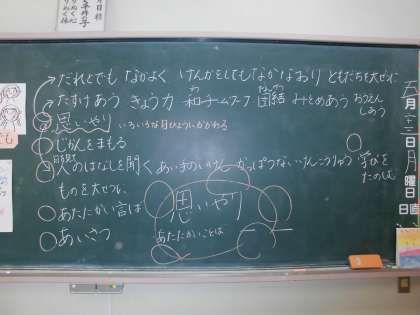 だれとでも なかよく けんかをしてもなかなおり ともだちを大せつに
たすけあう きょう力 和 チームワーク 団結 みとめあう おうえんしあう
わ だんけつ
思いやり いろいろな目ひょうにかかわる
じかんをまもる
目を見て
人のはなしを聞く あい手のいけん かっぱつないけんこうりゅう 学びをたのしむ
ものを大せつに
あたたかい言ば
あいさつ
思いやり
あたたかいことば
五月十二日月曜日
日直